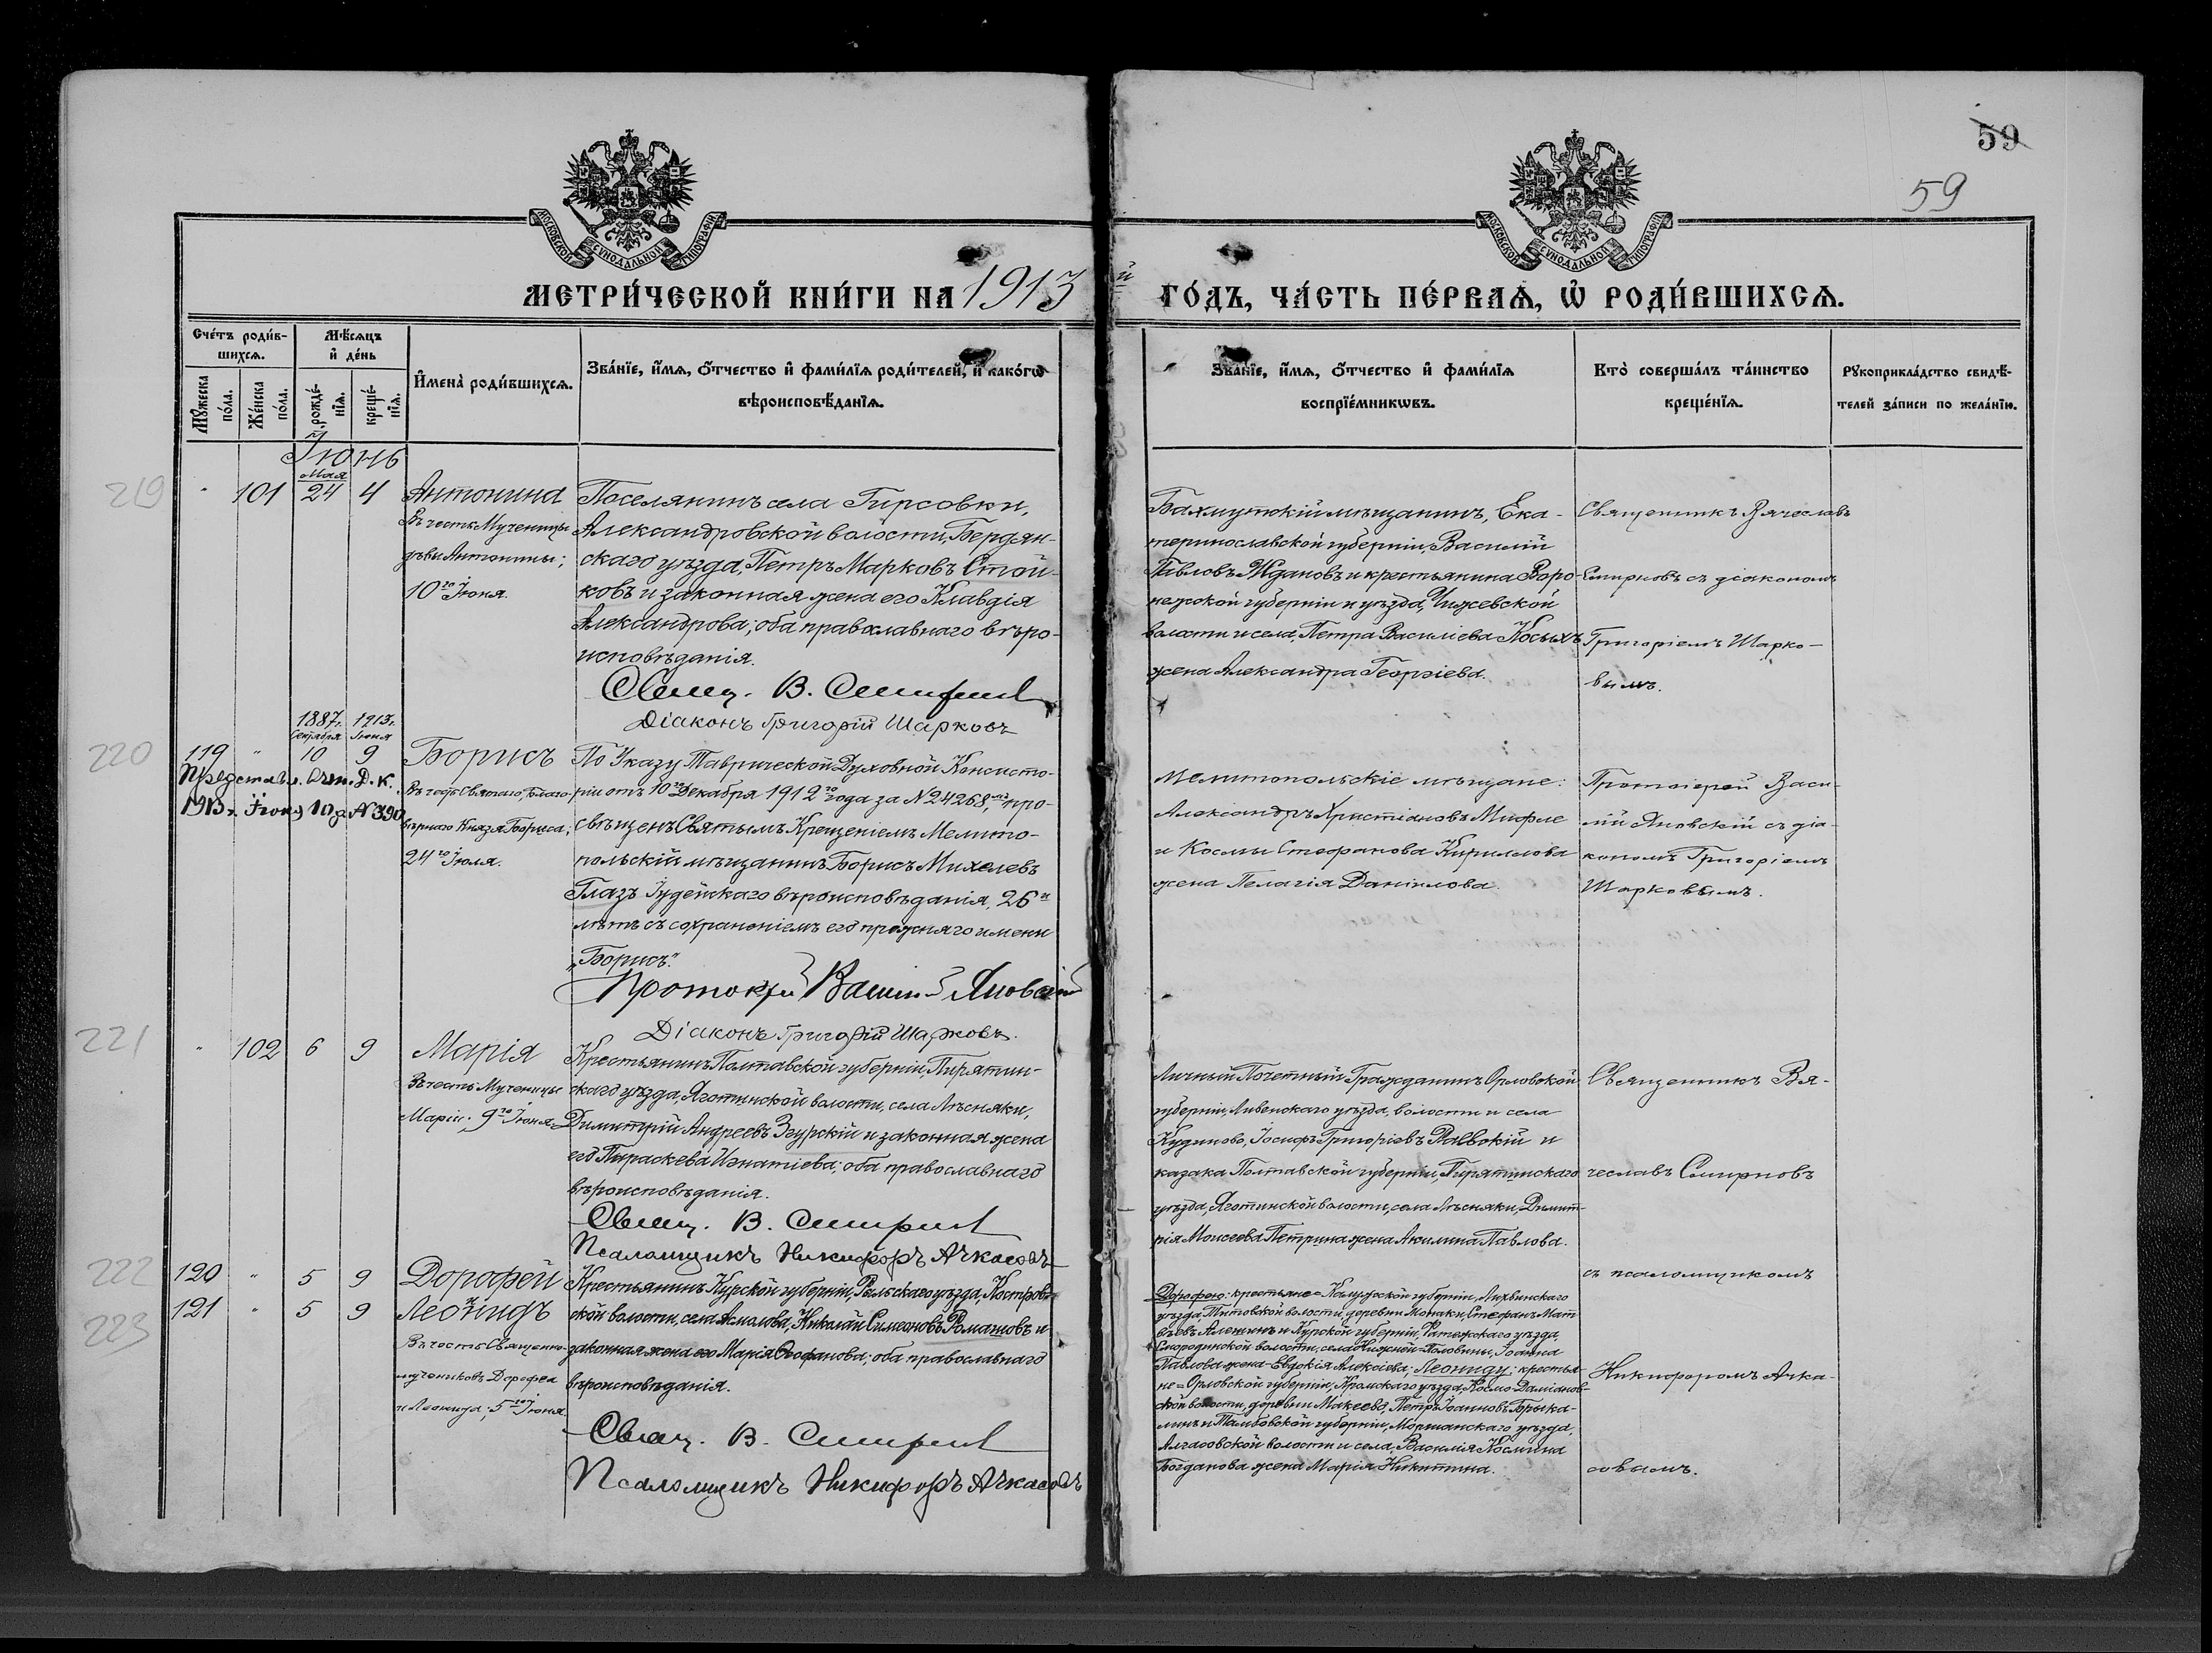 59
59
МОСКОВСКОЙ СѴНОДАЛЬНОЙ ТИПОГРАФІИ
МОСКОВСКОЙ СѴНОДАЛЬНОЙ ТИПОГРАФІИ
МЕТРИ́ЧЕСКОЙ КНИ́ГИ НА 1913 й ГО́ДЪ, ЧА́СТЬ ПЕ́РВАѦ, Ѡ҆ РОДИ́ВШИХСѦ.
Сче́тъ роди́в-
шихсѧ.
Мѣ́сѧцъ
и҆ де́нь
Мꙋ́жеска
по́ла.
Же́нска
по́ла.
рожде́-
нїѧ.
креще́-
нїѧ.
И҆мена̀ роди́вшихсѧ.
Зва́нїе, и҆́мѧ, ѻ҆́тчество и҆ фами́лїѧ роди́телей, и҆ како́гѡ
вѣроисповѣ́данїѧ.
Зва́нїе, и҆́мѧ, ѻ҆́тчество и҆ фами́лїѧ
воспрїе́мникѡвъ.
Кто̀ соверша́лъ та́инство
креще́нїѧ.
Рꙋкоприкла́дство свидѣ́-
телей за́писи по жела́нїю.
Іюнь
219
"
101
Мая
24
4
Антонина
Въ честь Мученицы
дѣвы Антонины;
10го Іюня.
Поселянинъ села Гирсовки,
Александровской волости, Бердян-
скаго уѣзда, Петръ Марковъ Стой-
ковъ и законная жена его Клавдія
Александрова; оба православнаго вѣро-
исповѣданія.
Свящ. В. Смирновъ
Діаконъ Григорій Шарковъ
Бахмутскій мѣщанинъ, Ека-
теринославской губерніи, Василій
Павловъ Ждановъ и крестьянина Воро-
нежской губерніи и уѣзда, Чижевской
волости и села, Петра Василіева Косыхъ
жена Александра Георгіева.
Священникъ Вячеславъ
Смирновъ съ діакономъ
Григоріемъ Шарко-
вымъ.
220
119
"
1887г.
Сентября
10
1913г.
Іюня
9
Представл. Отн. Д. К.
1913 г. Іюня 10 за № 390
Борисъ
Въ честь Святаго Благо-
вѣрнаго Князя Бориса;
24го Іюля.
По Указу Таврической Духовной Консисто-
ріи отъ 10го Декабря 1912го года за № 24268мъ, про-
свѣщенъ Святымъ Крещеніемъ Мелито-
польскій мѣщанинъ Борисъ Михелевъ
Глазъ Іудейскаго вѣроисповѣданія, 26и
лѣтъ съ сохраненіемъ его прежняго имени
„Борисъ".
Протоіерей Василій Яновскій
Діаконъ Григорій Шарковъ.
Мелитопольскіе мѣщане:
Александръ Христіановъ Мифле
и Космы Стефанова Кириллова
жена Пелагія Даніилова.
Протоіерей Васи-
лій Яновскій съ діа-
кономъ Григоріемъ
Шарковымъ.
221
"
102
6
9
Марія
Въ честь Мученицы
Маріи; 9го Іюня.
Крестьянинъ Полтавской губерніи, Пирятин-
скаго уѣзда, Яготинской волости, села Лѣсняки,
Димитрій Андреевъ Згурскій и законная жена
его Параскева Игнатіева; оба православнаго
вѣроисповѣданія.
Свящ. В. Смирновъ
Псаломщикъ Никифоръ Ачкасовъ
Личный Почетный Гражданинъ Орловской
губерніи, Ливенскаго уѣзда, волости и села
Кудиново, Іосифъ Григоріевъ Раевскій и
казака Полтавской губерніи, Пирятинскаго
уѣзда, Яготинской волости, села Лѣсняки, Димит-
рія Моисеева Петрина жена Акилина Павлова.
Священникъ Вя-
чеславъ Смирновъ
съ псаломщикомъ
222
120
"
5
9
Дорофей
223
121
"
5
9
Леонидъ
Въ честь Священно-
мучениковъ Дорофея
и Леонида; 5го Іюня.
Крестьянинъ Курской губерніи, Рыльскаго уѣзда, Костров-
ской волости, села Асмолова, Николай Симеоновъ Романовъ и
законная жена его Марія Ѳеофанова; оба православнаго
вѣроисповѣданія.
Свящ. В. Смирновъ
Псаломщикъ Никифоръ Ачкасовъ
Дорофею: крестьяне=Калужской губерніи, Лихвинскаго
уѣзда, волости, деревни Монаки, Стефанъ Мат
вѣевъ Алешинъ и Курской губерніи, Фатежскаго уѣзда,
Смородинской волости, села Нижней-Головины, Іоанна
Павлова жена-Евдокія Алексіева; Леониду: крестья-
не=Орловской губерніи, Кромскаго уѣзда, Космо-Даміанов-
ской волости, деревни Макеево, Петръ Іоанновъ Брыка-
линъ и Тамбовской губерніи, Моршанскаго уѣзда,
Алгасовской волости и села, Василія Космина
Богданова жена Марія Никитина.
Никифоромъ Ачка-
совымъ.